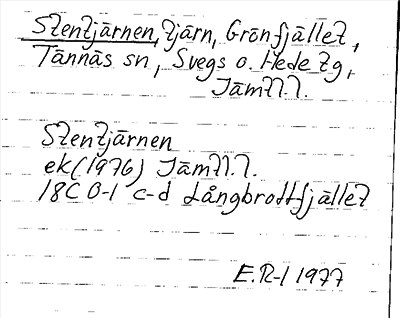 Stentjärnen, tjärn, Grönfjället,
Tännäs sn, Svegs o. Hede tg,
Jämtl.l.
Stentjärnen
ek(1976) Jämtl.l.
18C 0-1 c-d Långbrottfjället
E.R-l 1977